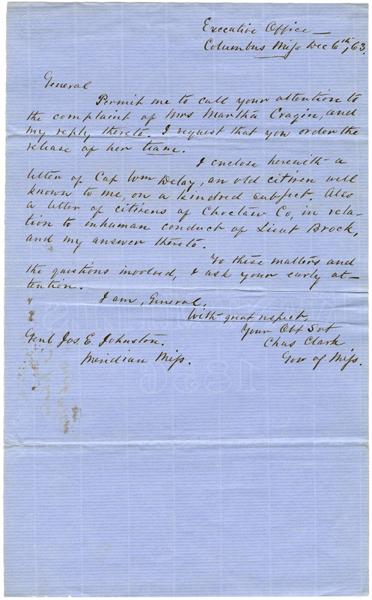 Executive Office —
Columbus Miss Dec 6th, 63.
General
Permit me to call your attention to
the complaint of Mrs Martha Cragin, and
my reply thereto. I request that you order the
release of her team.
I enclose herewith a
letter of Cap Wm Delay, an old citizen well
known to me, on a kindred subject. Also
a letter of citizens of Choctaw Co, in rela-
tion to inhuman conduct of Lieut Brock,
and my answer thereto.
To these matters and
the questions involved, I ask your early at-
tention.
I am, General,
With great respect
Your Obt Svt
Chas Clark
Gov of Miss.
Genl Jos E. Johnston.
Meridian Miss.